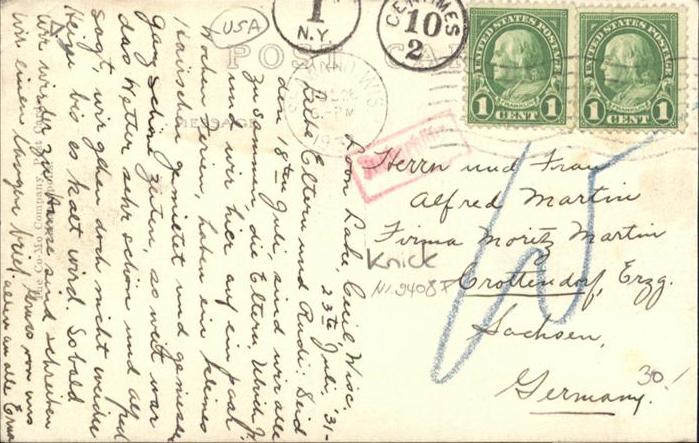 USA
1
N.Y.
CENTIMES
10
2
UNITED STATES POSTAGE
FRANKLIN
1 CENT 1
UNITED STATES POSTAGE
FRANKLIN
1 CENT 1
POST CA
MESSAGE
WIS
PM
Loon Lake, Cecil, Wisc.
23th Juli, 31-
Liebe Eltern und Rudi, Seid
dem 18ten Juli, sind wir alle
zusammen, die Eltern, Ulrich J.
und wir hier auf ein paar
Wochen Ferien, haben ein kleines
Häuschen gemietet und geniessen
ganz schöne Zeiten, so weit war
das Wetter sehr schön und Alfred
sagt, wir gehen doch nicht wieder
heim bis es kalt wird. Sobald
wir wieder zu Hause sind schreiben
wir einen langen Brief. Gruss von uns
allen an alle Erna
Herrn und Frau
Alfred Martin
Firma Moritz Martin
Knick
Crottendorf, Erzg.
N: 9408 F
Sachsen,
Germany.
30.-